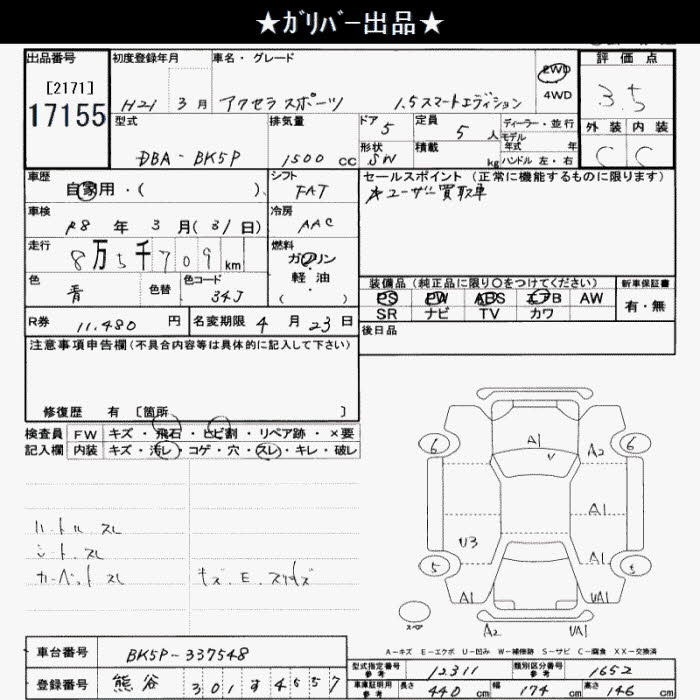 ★ｶﾞﾘﾊﾞｰ出品★
出品番号
[2171]
17155
初度登録年月
H21 3月
車名・グレード
アクセラスポーツ 1.5スマートエディション
2WD
4WD
評価点
3.5
外装 内装
C C
型式
DBA-BK5P
排気量
1500 cc
ドア
5
形状
SW
定員
5人
積載
kg
ディーラー・並行
モデル
年式 年
ハンドル 左・右
車歴
自家用・( )
シフト
FAT
セールスポイント (正常に機能するものに限ります)
★ユーザー買取車
車検
R8年 3月(31日)
冷房
AAC
走行
8万5千709km
燃料
ガソリン
・
軽油
( )
色
青
色替
色コード
34J
装備品 (純正品に限り〇をつけてください)
PS PW ABS エアB AW
SR ナビ TV カワ
新車保証書
有・無
R券 11,480円
名変期限 4月23日
後日品
注意事項申告欄 (不具合内容等は具体的に記入して下さい)
修復歴 有 〔箇所 〕
検査員 FW キズ・飛石・ヒビ割・リペア跡・×要
記入欄 内装 キズ・汚レ・コゲ・穴・スレ・キレ・破レ
ハンドル スレ
シート スレ
カーペット スレ
キズ.E.
6 A1 A2 6
A1
U3 A1
5 5
A1 UA1
スペア
A2 UA1
A-キズ E-エクボ U-凹み W-補修跡 S-サビ C-腐食 XX-交換済
車台番号 BK5P-337548
登録番号 熊谷 301 す 4557
型式指定番号
参考
12311
類別区分番号
参考
1652
車庫証明用
参考
長さ 440cm 幅 174cm 高さ 146cm